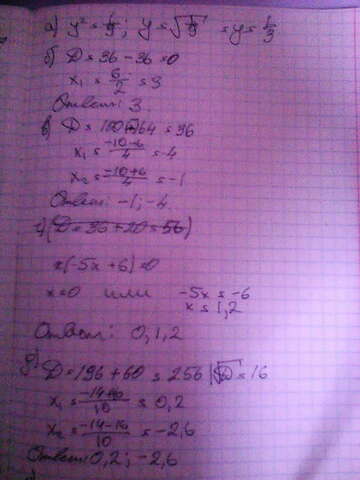 а) y² = 1/9; y = √1/9 = y = 1/3
б) D = 36 - 36 = 0
x₁ = 6/2 = 3
Ответ: 3
в) D = 100 - 64 = 36
x₁ = -10-6/4 = -4
x₂ = -10+6/4 = -1
Ответ: -1; -4
г) (D = 36 + 20 = 56)
x(-5x + 6) = 0
x = 0 или -5x = -6
x = 1,2
Ответ: 0, 1,2
д) D = 196 + 60 = 256 √D = 16
x₁ = -14+16/10 = 0,2
x₂ = -14-16/10 = -2,6
Ответ: 0,2; -2,6